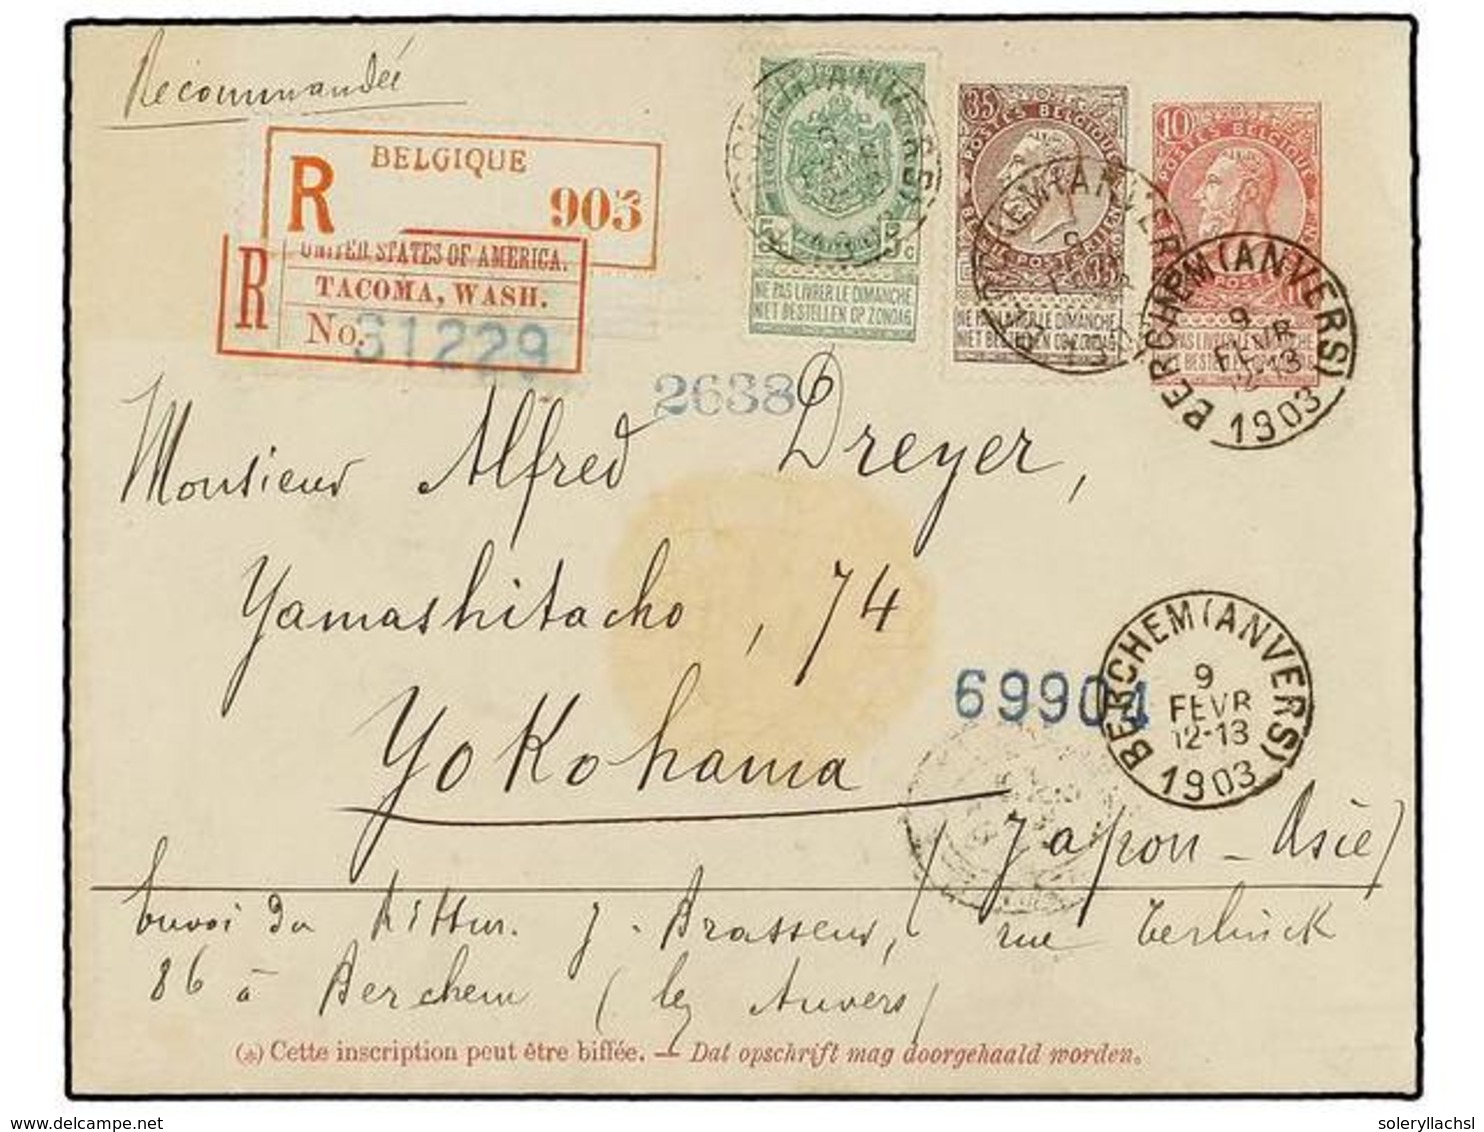 Recommandée
BELGIQUE
R 903
UNITED STATES OF AMERICA.
R TACOMA, WASH.
No. 31229
5c 5c
NE PAS LIVRER LE DIMANCHE
NIET BESTELLEN OP ZONDAG
35
POSTES BELGIQUE
35
NE PAS LIVRER LE DIMANCHE
NIET BESTELLEN OP ZONDAG
10
POSTES BELGIQUE
BERCHEM (ANVERS)
9
FEVR
12-13
1903
2638
Monsieur Alfred Dreyer,
Yamashitacho, 74
Yokohama
69904
BERCHEM (ANVERS)
9
FEVR
12-13
1903
(Japon - Asie)
Envoi du J. Brasseur, rue
86 à Berchem (lez Anvers)
(*) Cette inscription peut être biffée. — Dat opschrift mag doorgehaald worden.
soleryllachsl